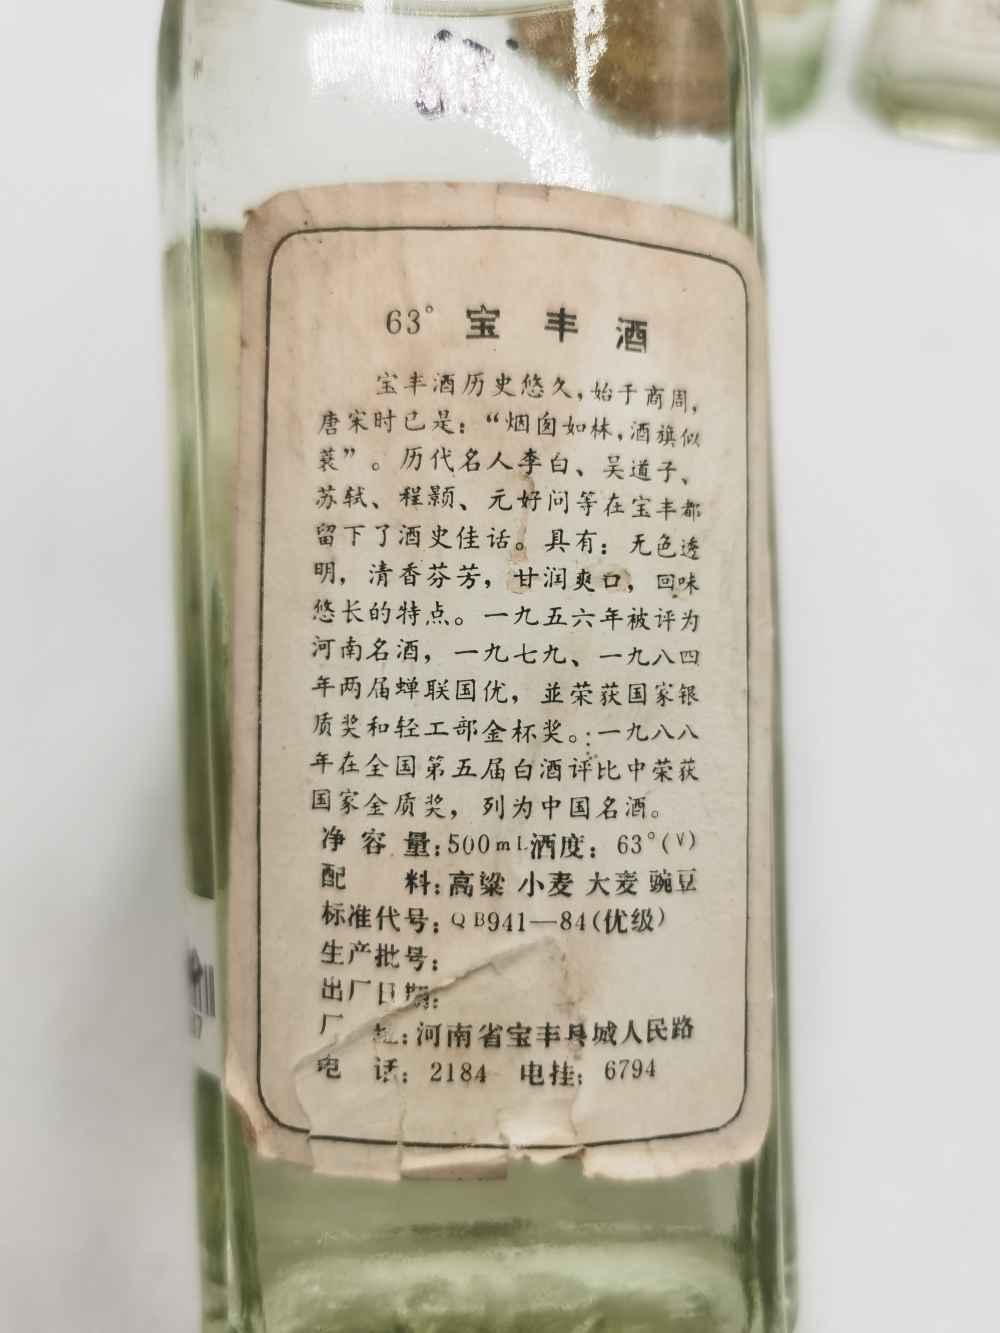 63° 宝丰酒
宝丰酒历史悠久，始于商周，
唐宋时已是：“烟囱如林，酒旗似
蓑”。历代名人李白、吴道子、
苏轼、程颢、元好问等在宝丰都
留下了酒史佳话。具有：无色透
明，清香芬芳，甘润爽口，回味
悠长的特点。一九五六年被评为
河南名酒，一九七九、一九八四
年两届蝉联国优，並荣获国家银
质奖和轻工部金杯奖。一九八八
年在全国第五届白酒评比中荣获
国家金质奖，列为中国名酒。
净容量：500mL 酒度：63°(V)
配料：高粱 小麦 大麦 豌豆
标准代号：QB941—84(优级)
生产批号：
出厂日期：
厂址：河南省宝丰县城人民路
电话：2184 电挂：6794